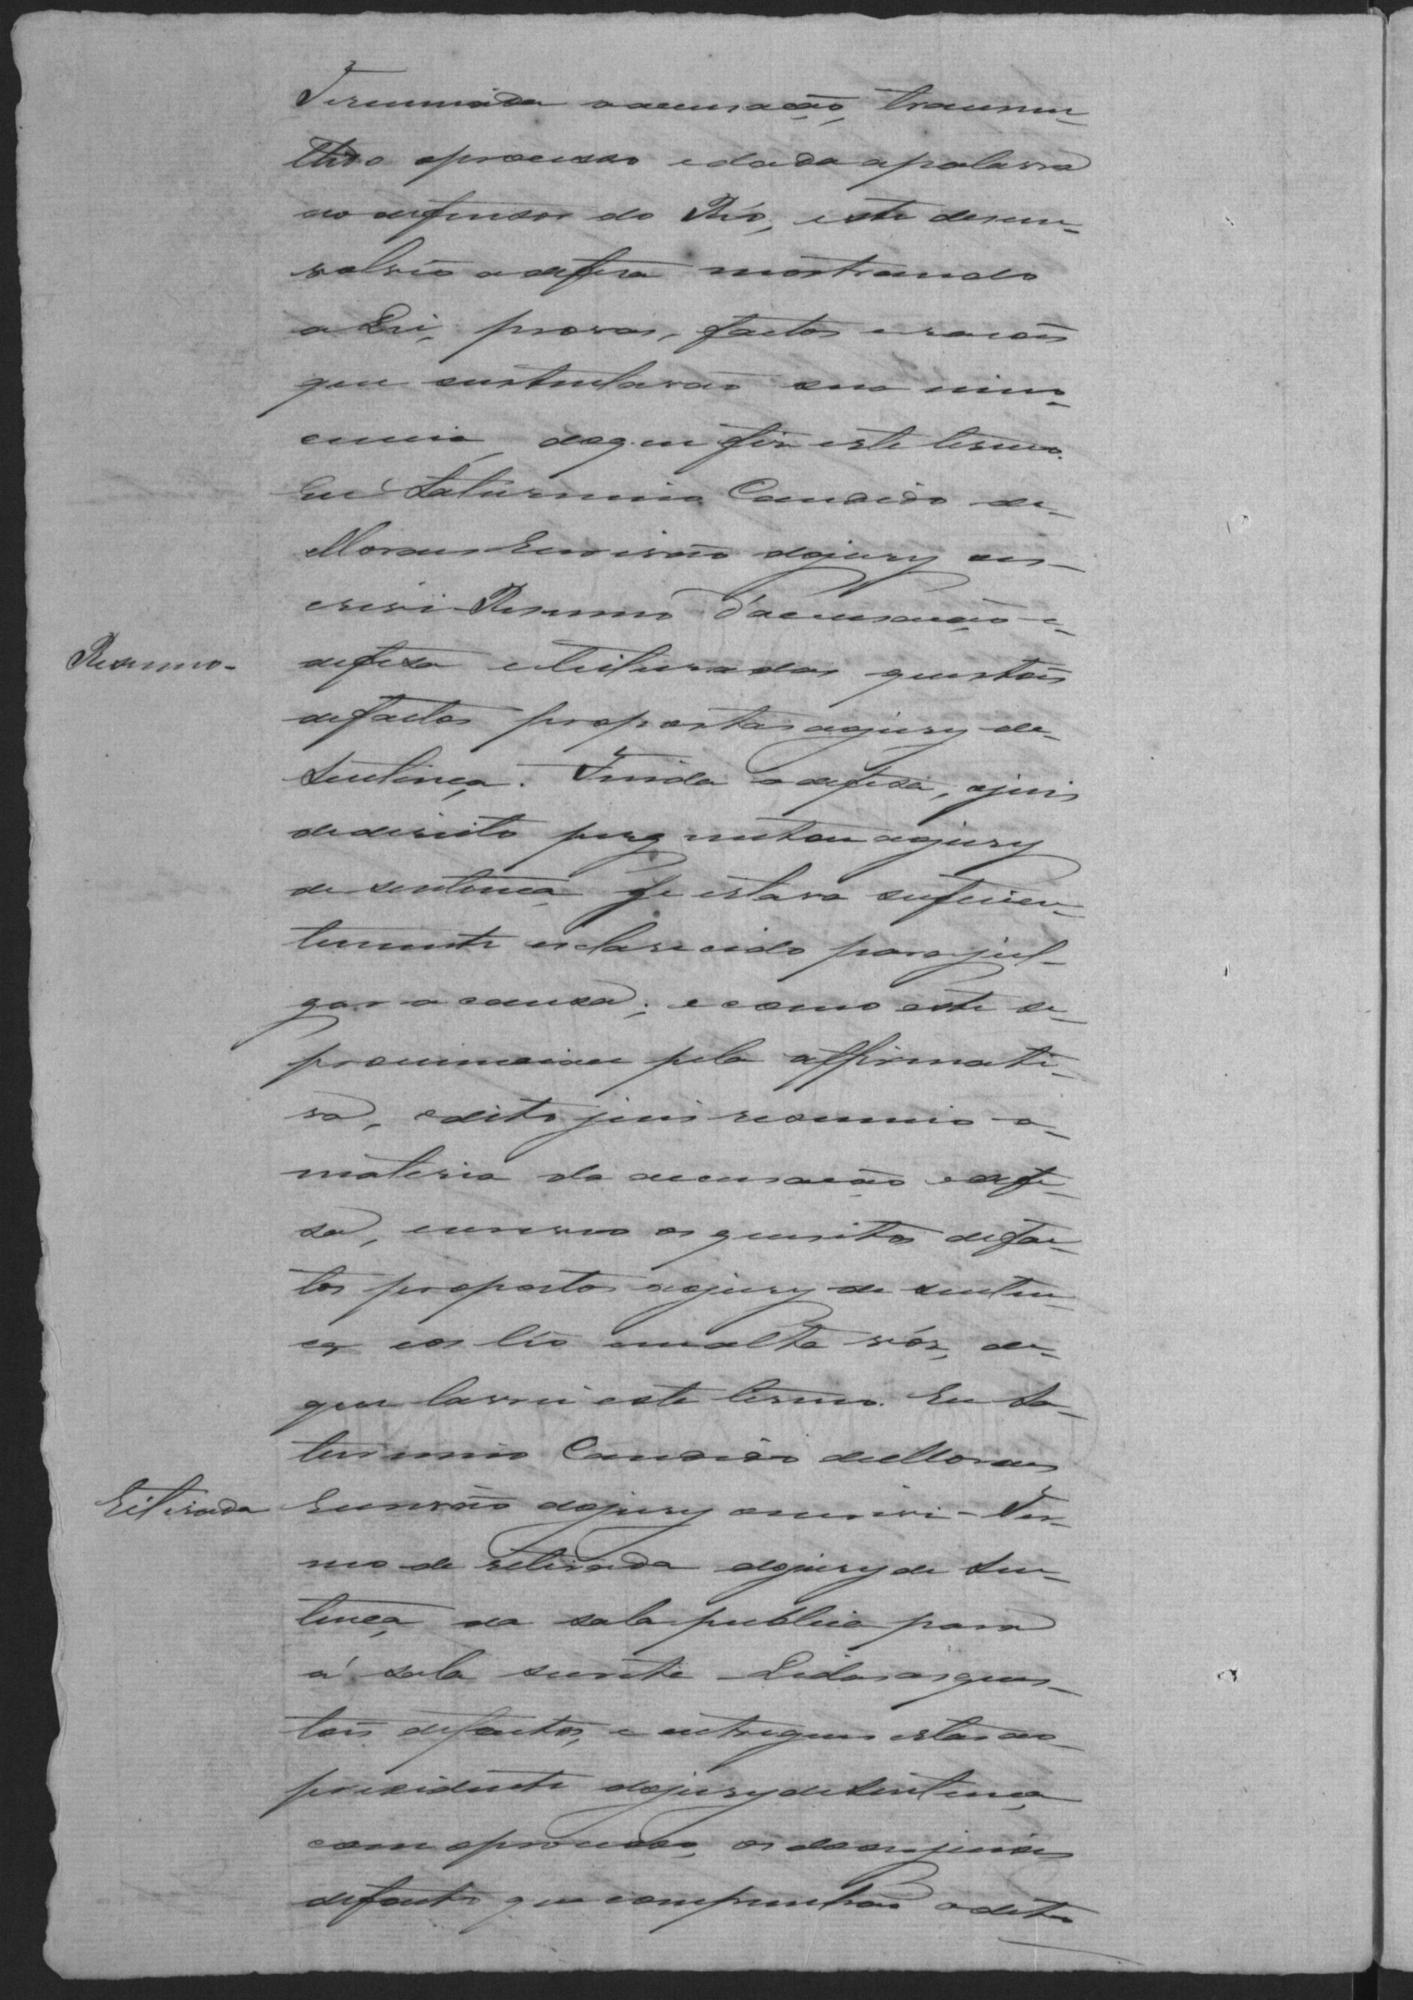 Terminada a accusação, transmit-
tido o processo e dada a palavra
ao defensor do Réo, este desen-
volvio a defesa mostrando
a Lei, provas, factos e razoẽs
que sustentavão sua inno-
cencia, do que fiz este termo.
Eu Saturnino Candido de
Moraes Escrivão do jury es-
crevi. Resumo d'accusação e
Resumo-
defesa e leitura das questoẽs
de factos propostas ao jury de
Sentença. Finda a defesa, o juis
de direito perguntou ao jury
de sentença se estava suficien-
temente esclarecido para jul-
gar a causa; e como este se
pronunciou pela affirmati-
va, o dito juis resumio a
materia da accusação e defe-
sa, escreveo os quesitos de fac-
tos propostos ao jury de senten-
ça e os lêo em alta vóz, de
que lavrei este termo. Eu Sa-
turnino Candido de Moraes
Retirada
Escrivão do jury escrevi - Ter-
mo de retirada do jury de Sen-
tença da sala publica para
a sala secreta - Lidas as ques-
toẽs de factos, e entregues estas ao
presidente do jury de Sentença,
com o processo, os doze juises
de facto que compunhão o dito